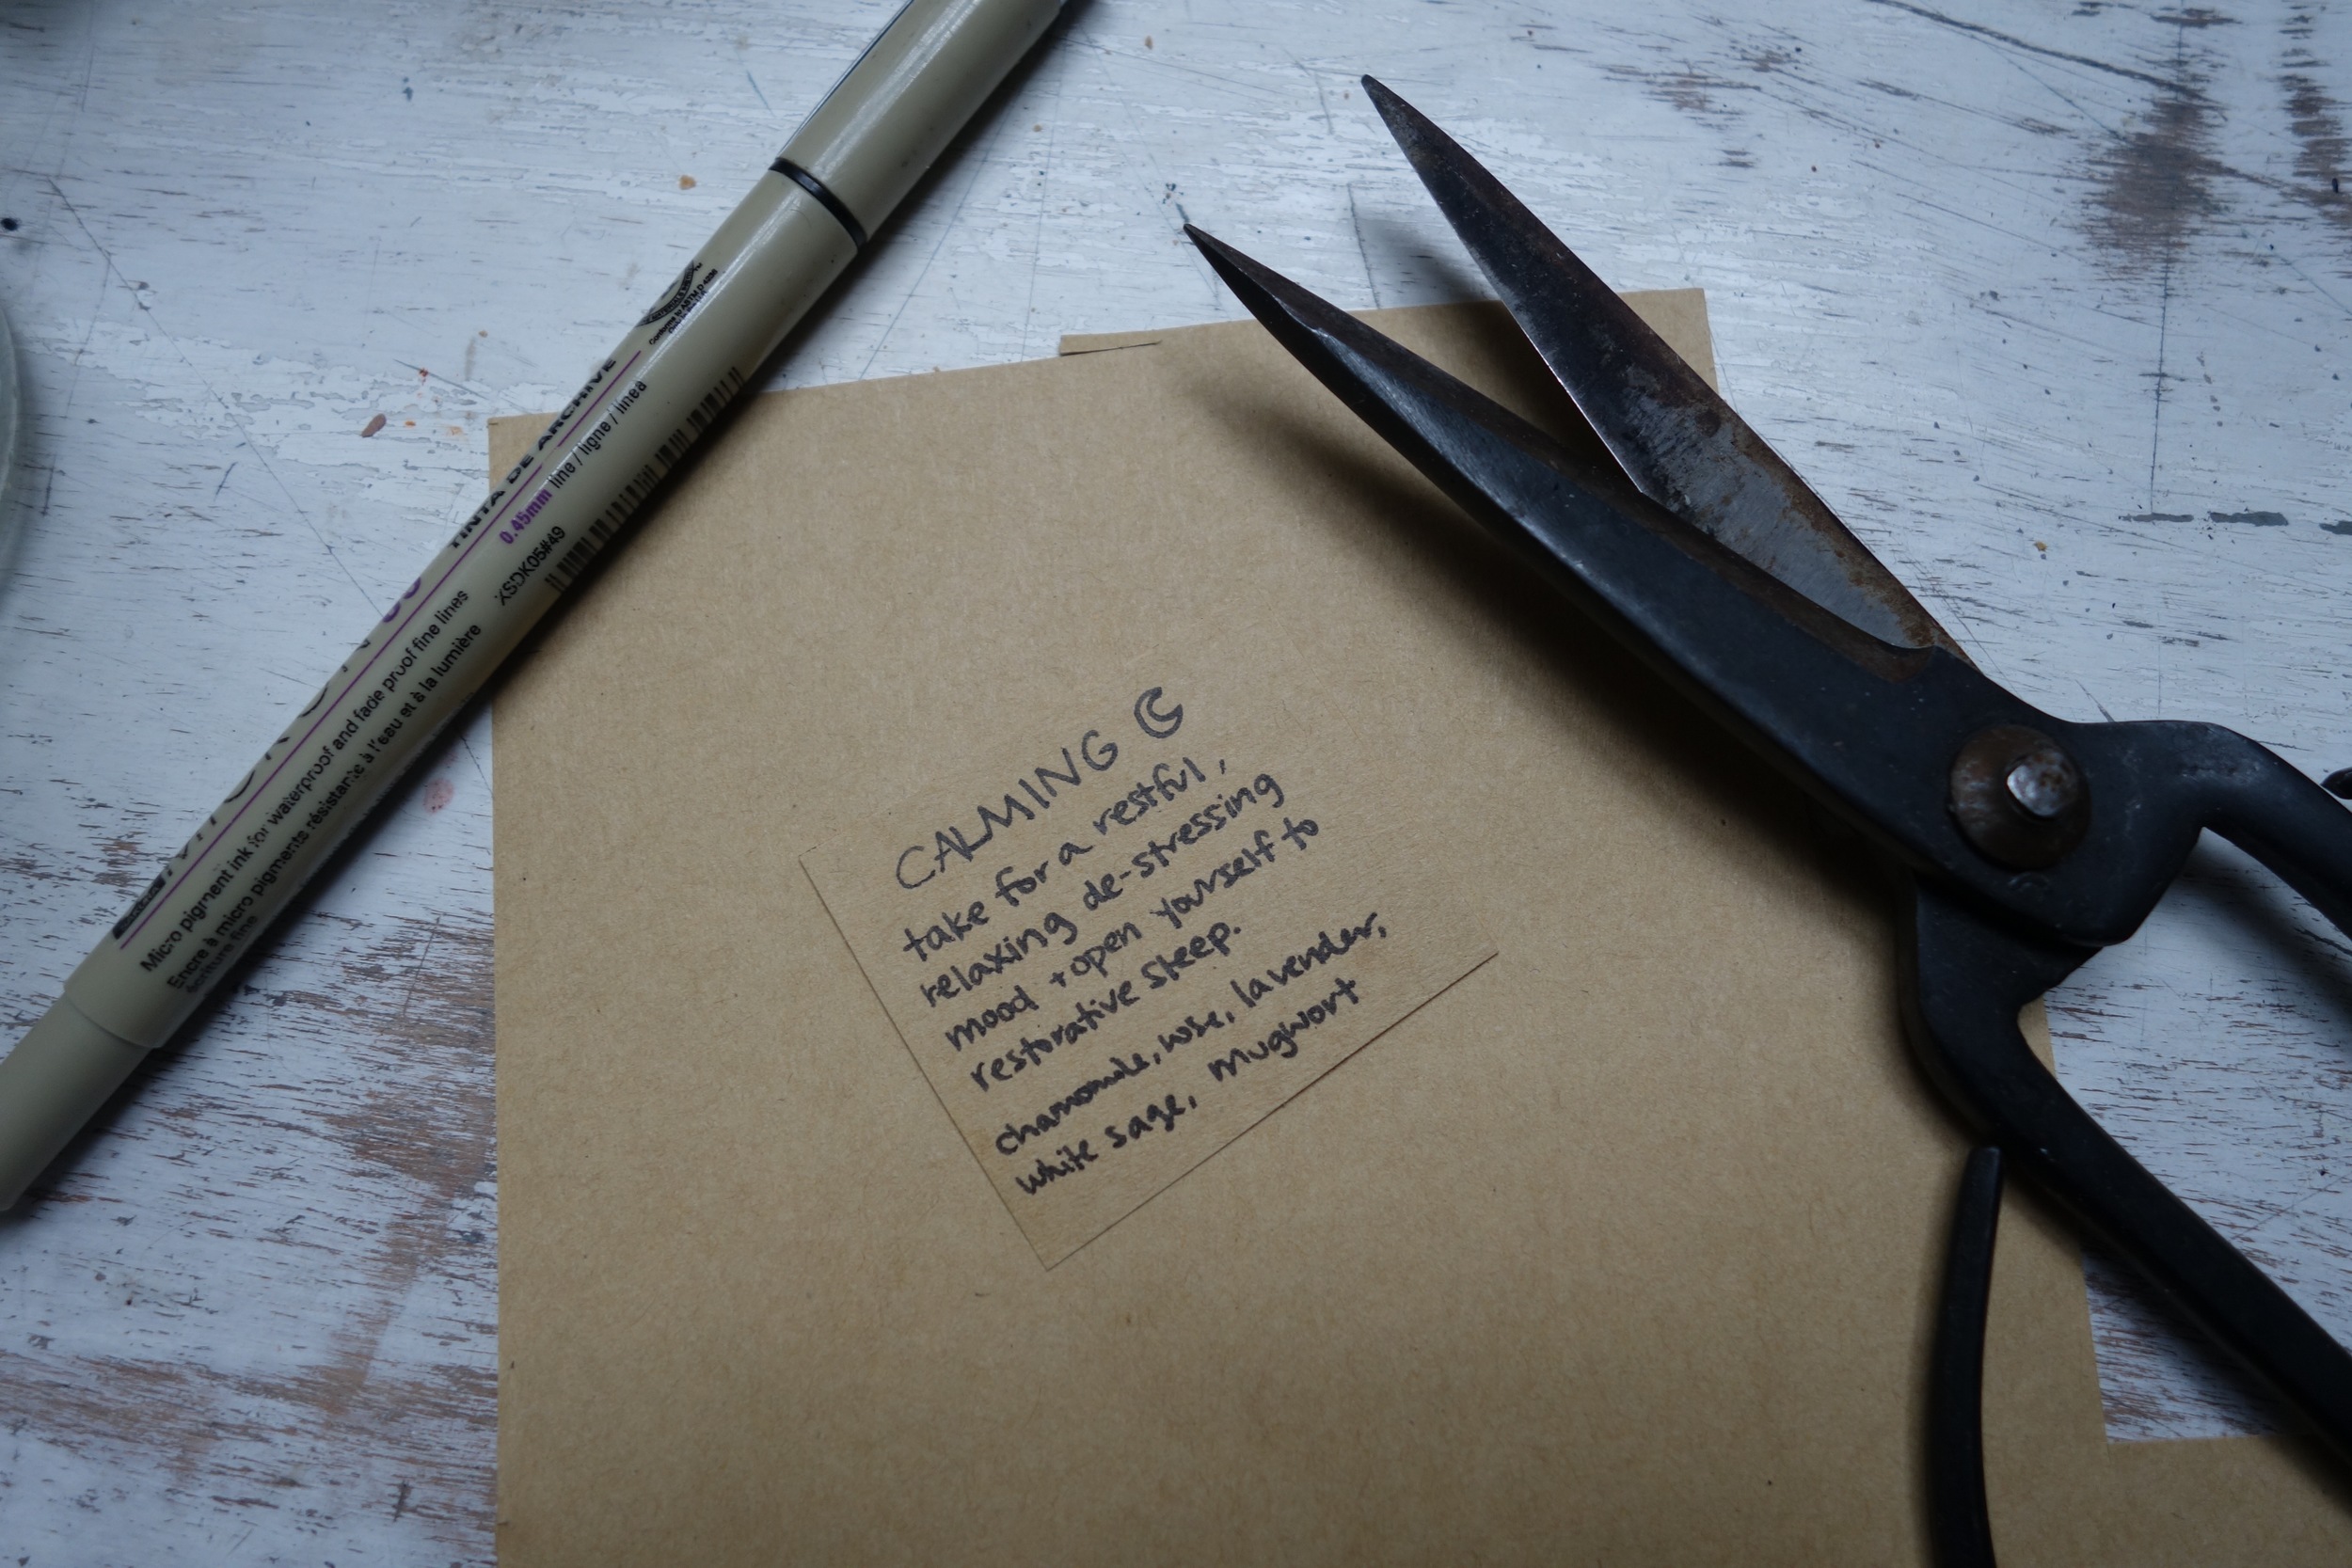 CALMING
take for a restful,
relaxing de-stressing
mood + open yourself to
restorative sleep.
chamomile, rose, lavender,
white sage, mugwort
TINTA DE ARCHIVE
0.45mm line / ligne / linea
XSDK05#49
Micro pigment ink for waterproof and fade proof fine lines
Encre à micro pigments résistante à l'eau et à la lumière